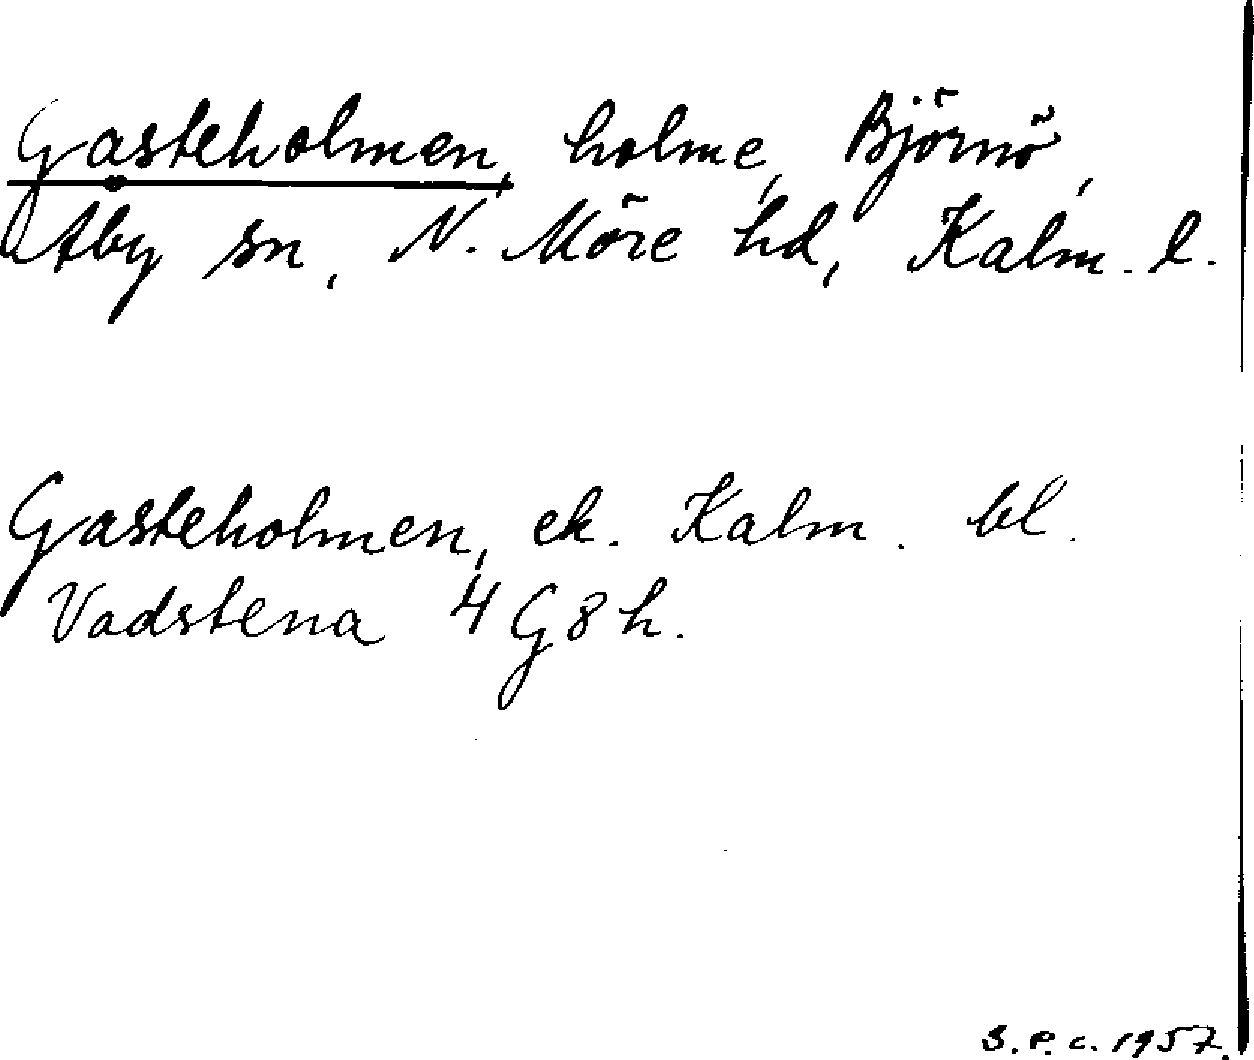 Gasteholmen, holme, Björnö,
Åby sn, N. Möre hd, Kalm. l.
Gasteholmen, ek. Kalm. bl.
Vadstena 4 G 8 h.
S.P.C. 1957.